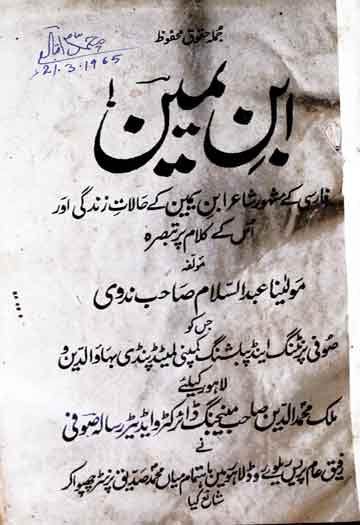 جملہ حقوق محفوظ
محمد اقبال
21.3.1965
ابنِ یمین
فارسی کے مشہور شاعر ابن یمین کے حالاتِ زندگی اور
اس کے کلام پر تبصرہ
مولفہ
مولیٰنا عبدالسلام صاحب ندوی
جس کو
صوفی پرنٹنگ اینڈ پبلشنگ کمپنی لمیٹڈ پنڈی بہاؤالدین و
لاہور کیلئے
ملک محمدالدین صاحب مینیجنگ ڈائرکٹر و ایڈیٹر رسالہ صوفی
نے
رفیق عام پریس ریلوے روڈ لاہور میں باہتمام میاں محمد صدیق پرنٹر چھپوا کر
شائع کیا